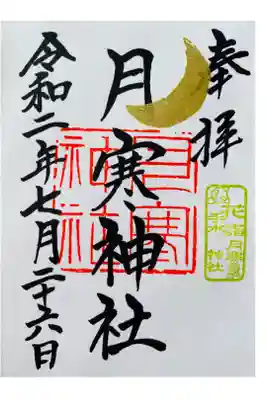 奉拝
月寒神社
令和二年七月二十六日
月寒
神社